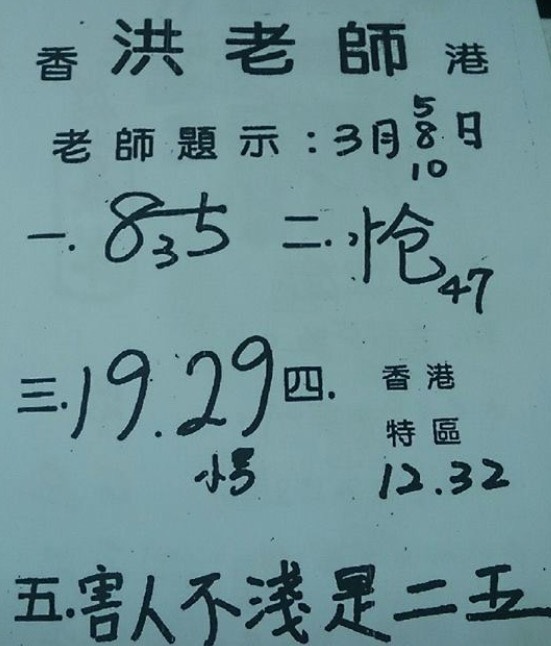 香 洪老師 港
老師題示：3月5 8 10日
一. 835 二. 怆47
三. 19.29 小号 四. 香港特區 12.32
五. 害人不淺是二五